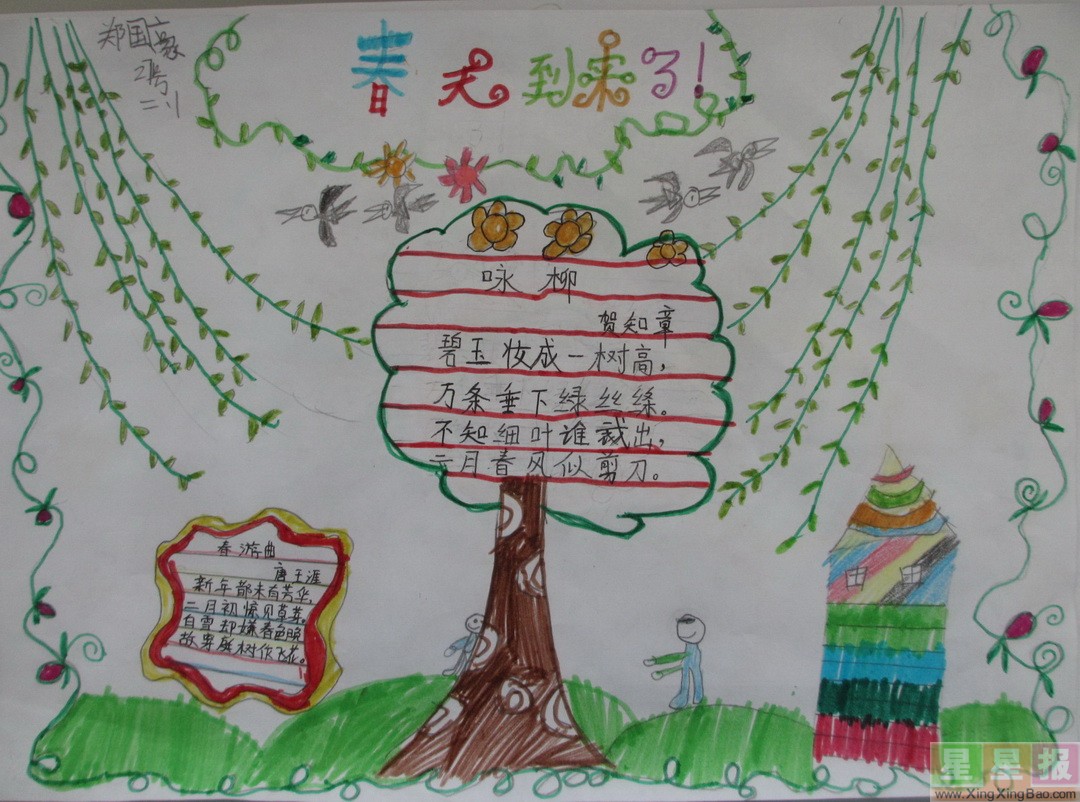 郑国豪
27号
二.1
春天到来了!
咏柳
贺知章
碧玉妆成一树高,
万条垂下绿丝绦。
不知细叶谁裁出,
二月春风似剪刀。
春游曲
唐王涯
新年都未有芳华,
二月初惊见草芽。
白雪却嫌春色晚
故穿庭树作飞花。
星星报
www.XingXingBao.com